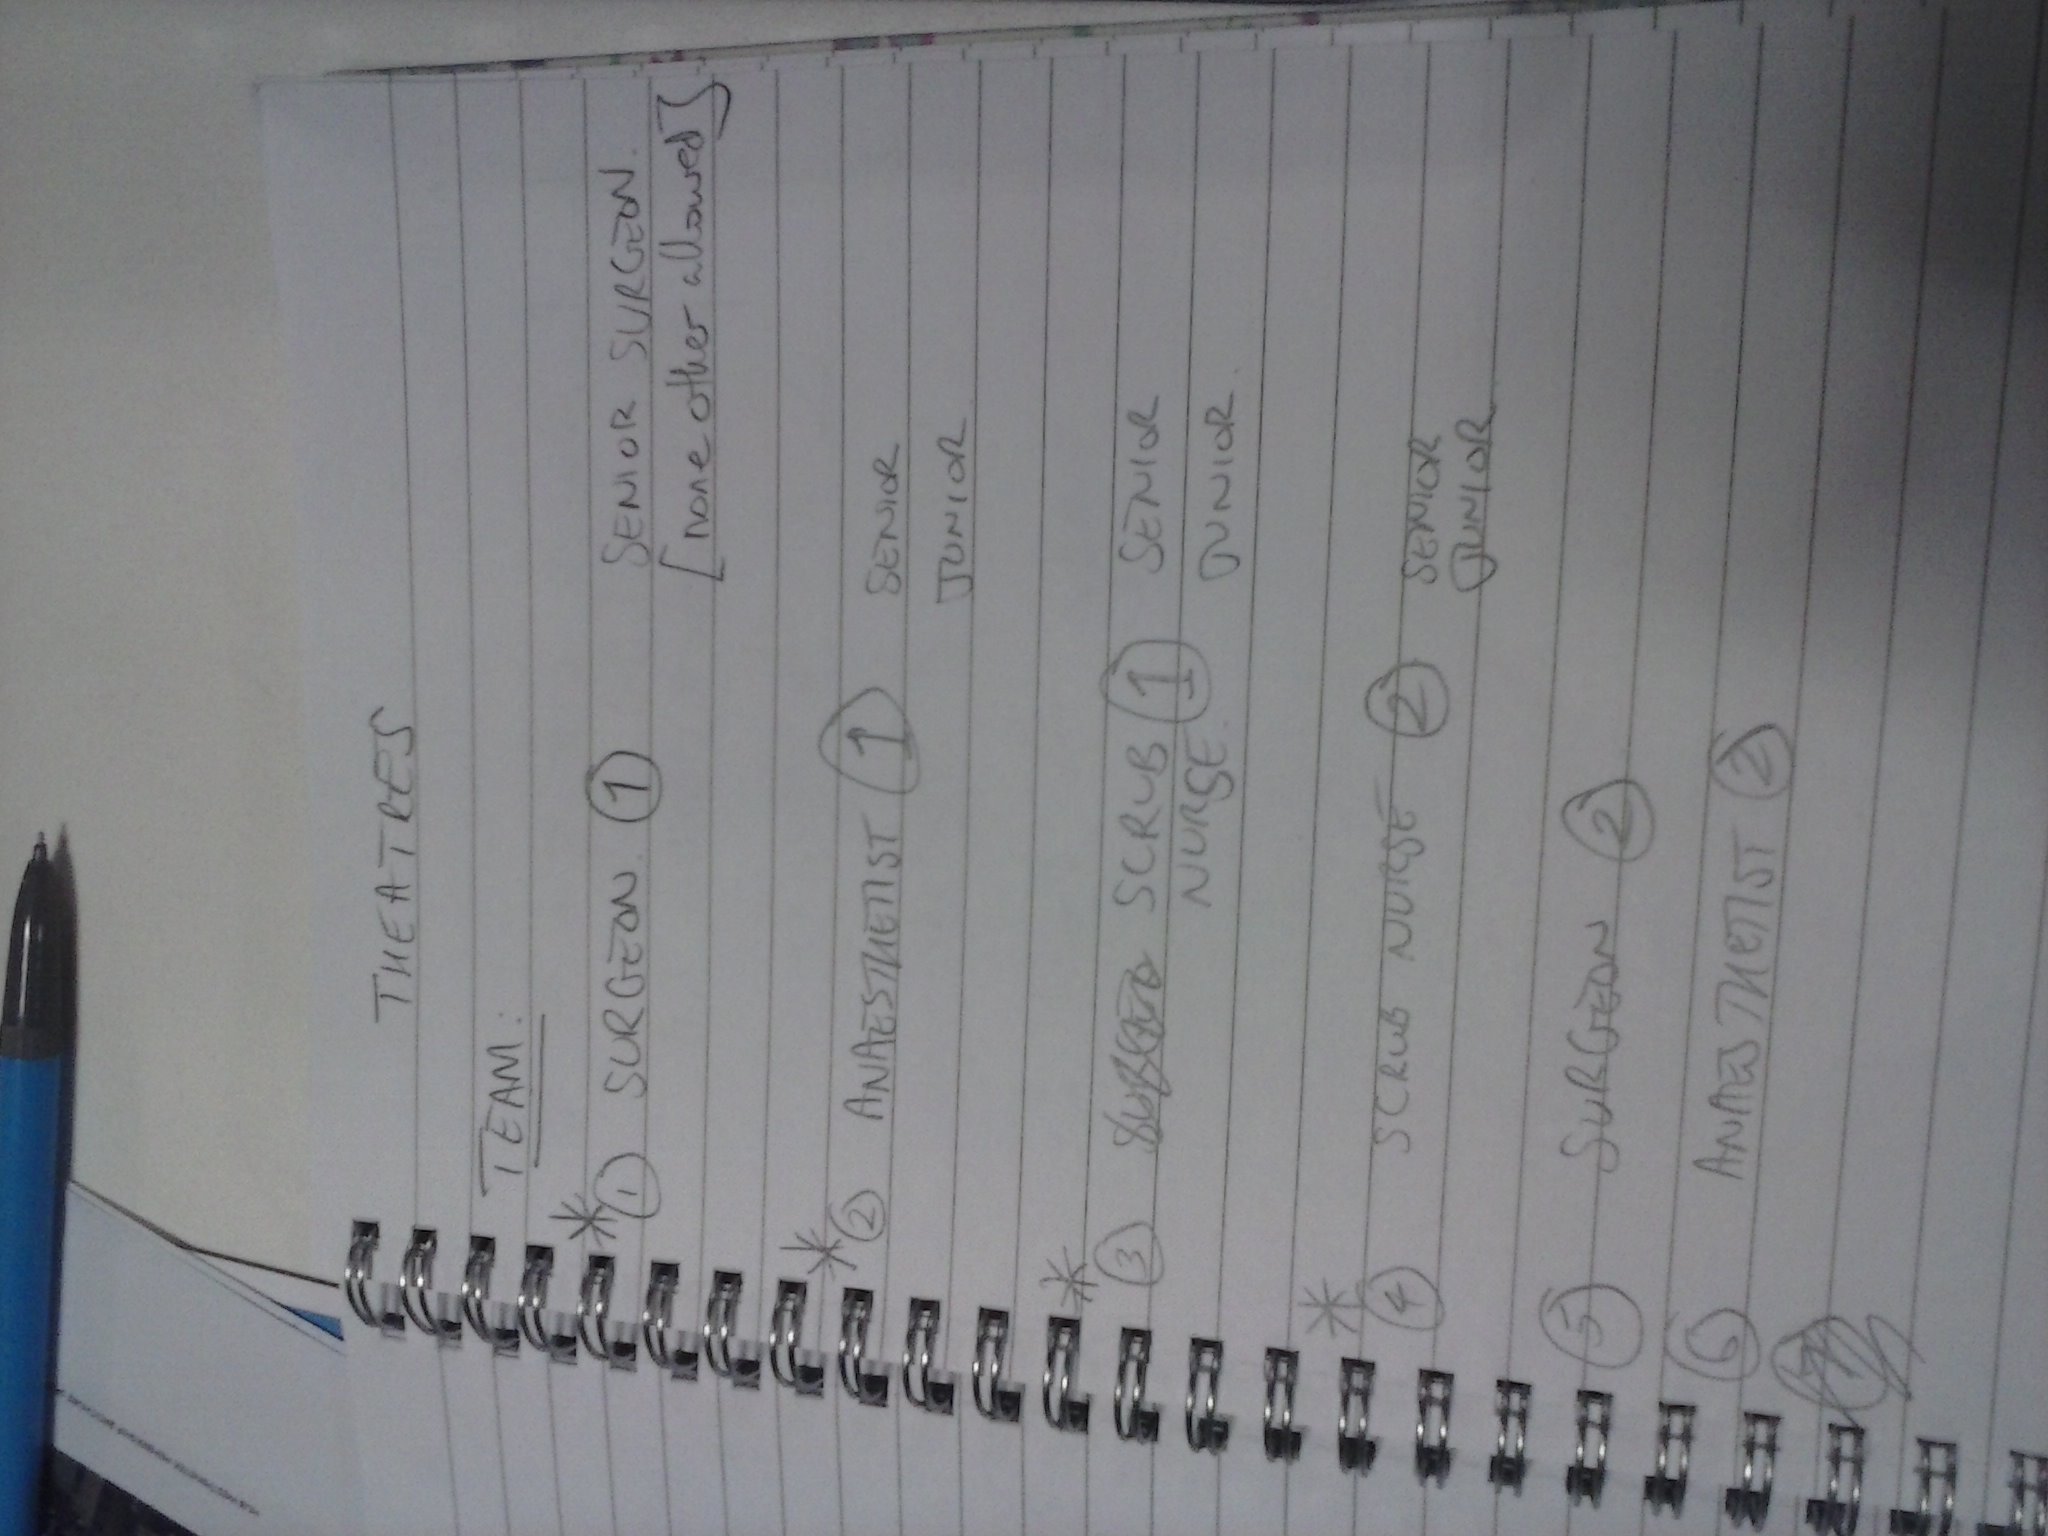 THEATRES
TEAM:
* ① SURGEON. ① SENIOR SURGEON.
[none other allowed]
* ② ANAESTHETIST ① SENIOR
JUNIOR
* ③ SCRUB ① SENIOR
NURSE. JUNIOR.
* ④ SCRUB NURSE ② SENIOR
JUNIOR
⑤ SURGEON ②
⑥ ANAESTHETIST ②